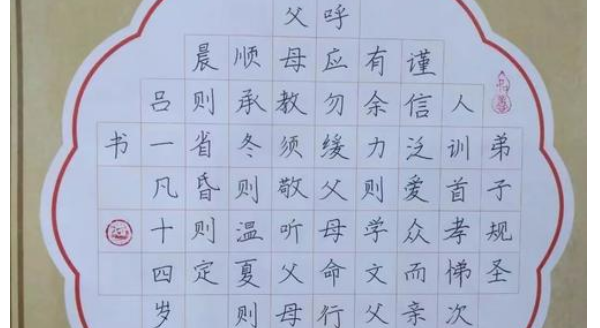 弟子规圣
人训首孝悌次
谨信泛爱众而亲
有余力则学文父
呼应勿缓父母命行
父母教须敬听父母
顺承冬则温夏则
晨则省昏则定
吕一凡十四岁
书